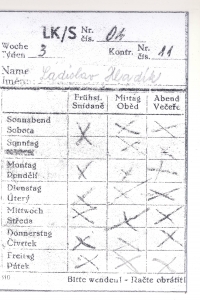 LK/S Nr. čís. 04
Woche Týden 3 Kontr. Nr. čís. 11
Name Jméno: Ladislav Hladík
Frühst. Snídaně Mittag Oběd Abend Večeře
Sonnabend Sobota X
Sonntag
Montag Pondělí X X X
Dienstag Úterý X X X
Mittwoch Středa X X X
Donnerstag Čtvrtek X X X
Freitag Pátek X X X
Bitte wenden! - Račte obrátit!